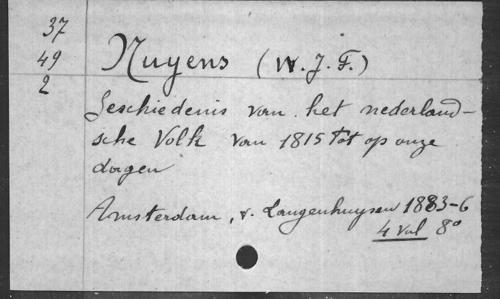 37
49
2
Nuyens (W. J. F.)
Geschiedenis van het nederland-
sche Volk van 1815 tot op onze
dagen
Amsterdam, v. Langenhuysen 1883-6
4 vol 8°